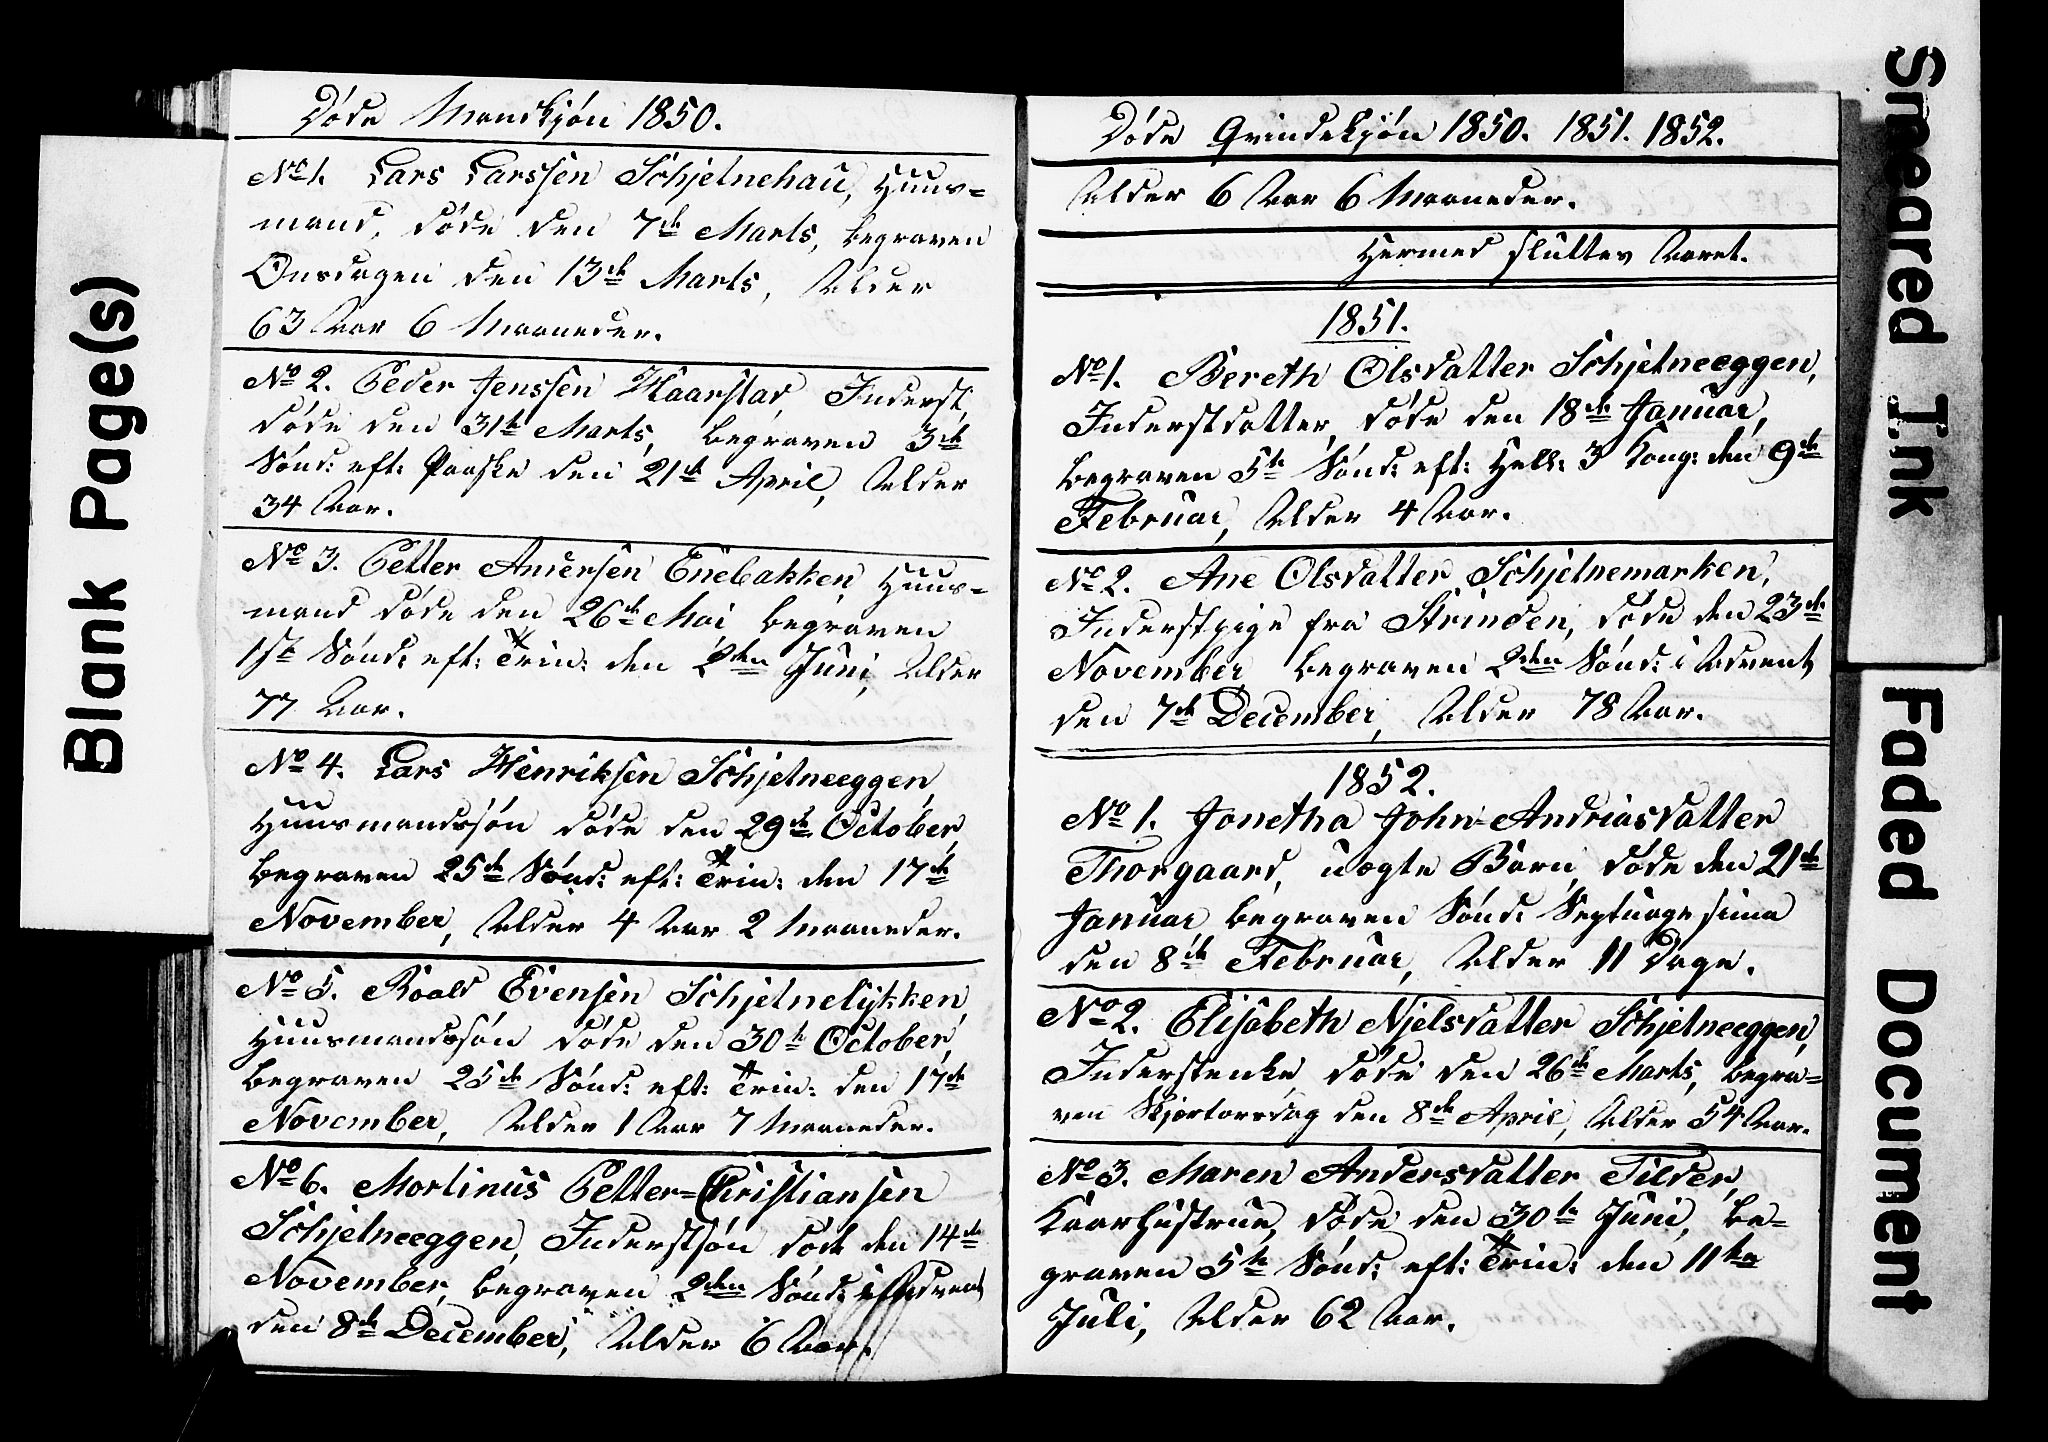 Blank Page(s)
Døde Mandkjøn 1850.
No 1. Lars Larssen Schjelnehau, Huus=
mand, døde den 7de Marts, begraven
Onsdagen den 13de Marts, Alder
63 Aar 6 Maaneder.
No 2. Peder Jenssen Haarstad, Inderst,
døde den 31te Marts, begraven 3die
Sønd: eft: Paaske den 21de April, Alder
34 Aar.
No 3. Petter Andersen Enebakken, Huus=
mand døde den 26de Mai begraven
1ste Sønd: eft: Trin: den 2den Juni, Alder
77 Aar.
No 4. Lars Henriksen Schjelneeggen,
Huusmandssøn døde den 29de October,
begraven 25de Sønd: eft: Trin: den 17de
November, Alder 4 Aar 2 Maaneder.
No 5. Roald Evensen Schjelnelykken,
Huusmandssøn døde den 30te October,
begraven 25de Sønd: eft: Trin: den 17de
November, Alder 1 Aar 7 Maaneder.
No 6. Mortinus Petter=Christiansen
Schjelneeggen, Inderstsøn døde den 14de
November, begraven 2den Sønd: i Advent
den 8de December, Alder 6 Aar.
Døde Qvindekjøn 1850. 1851. 1852.
Alder 6 Aar 6 Maaneder.
Hermed sluttes Aaret.
1851.
No 1. Bereth Olsdatter Schjelneeggen,
Inderstdatter, døde den 18de Januar,
begraven 5te Sønd: eft: Hell: 3 Kong: den 9de
Februar, Alder 4 Aar.
No 2. Ane Olsdatter Schjelnemarken,
Inderstpige fra Strinden, døde den 23de
November, begraven 2den Sønd: i Advent,
den 7de December, Alder 78 Aar.
1852.
No 1. Jonetha John=Andriasdatter
Thorgaard, uægte Barn, døde den 21de
Januar begraven Sønd: Septuagesima
den 8de Februar, Alder 11 Dage.
No 2. Elisabeth Njelsdatter Schjelneeggen,
Inderstenke, døde den 26de Marts, begra=
ven Skjærtorsdag den 8de April, Alder 54 Aar.
No 3. Maren Andersdatter Tilder,
Kaarhustrue, døde den 30te Juni, be=
graven 5te Sønd: eft: Trin: den 11te
Juli, Alder 62 Aar.
Smeared Ink
Faded Document